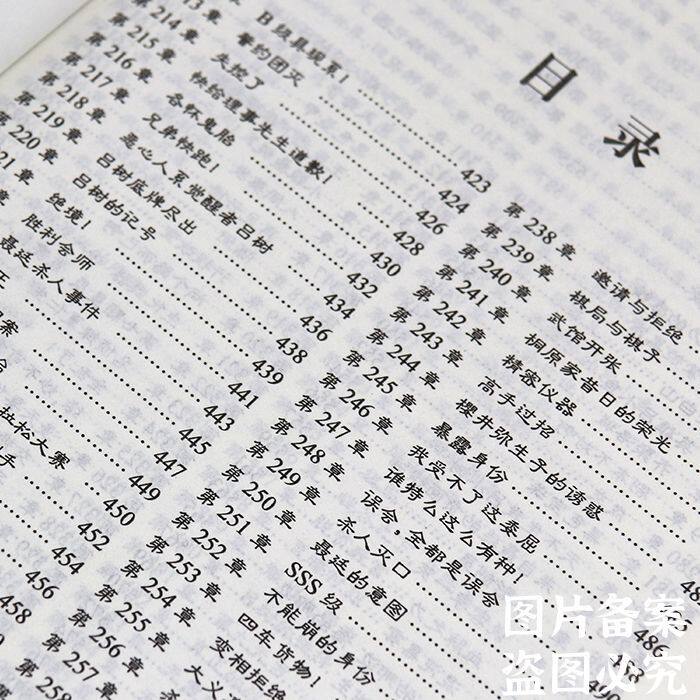 目录
13 章 B 级具现系! 423
第 214 章 誓约团灭 424
第 215 章 失控了 426
第 216 章 快给理事先生道歉! 428
第 217 章 各怀鬼胎 430
第 218 章 兄弟快跑! 432
第 219 章 是心人系觉醒者吕树 434
220 章 吕树底牌尽出 436
21 章 吕树的记号 438
章 绝境! 439
胜利会师 441
聂廷杀人事件 443
445
447
449
拉松大赛 450
手 452
454
456
458
第 238 章 邀请与拒绝
第 239 章 棋局与棋子
第 240 章 武馆开张
第 241 章 桐原家昔日的荣光
第 242 章 精密仪器
第 243 章 高手过招
第 244 章 樱井弥生子的诱惑
第 245 章 暴露身份
第 246 章 我受不了这委屈
第 247 章 谁特么这么有种!
第 248 章 误会,全都是误会
第 249 章 杀人灭口
第 250 章 聂廷的意图
第 251 章 SSS 级
第 252 章 不能崩的身份
第 253 章 四车货物!
第 254 章 变相拒绝
第 255 章 大义
第 256 章
第 257 章
第 258
图片备案
盗图必究